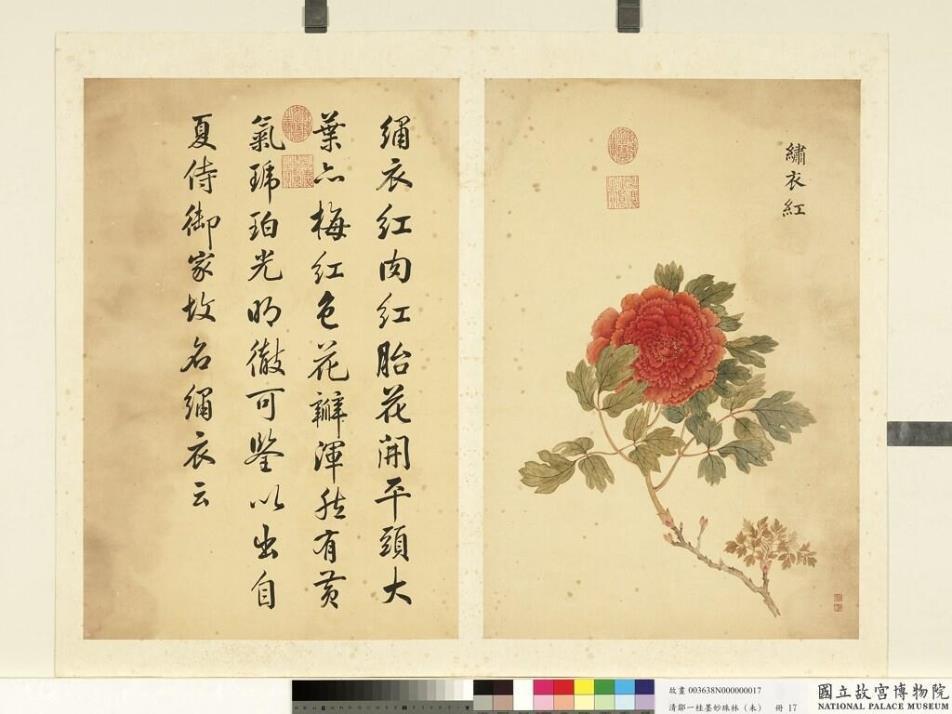 繡衣紅
繡衣紅肉紅胎花開平頭大
葉亦梅紅色花瓣渾然有黃
氣琥珀光明徹可鑒以出自
夏侍御家故名繡衣云
故畫 003638N000000017
清鄒一桂墨妙珠林（未） 冊 17
國立故宮博物院
NATIONAL PALACE MUSEUM